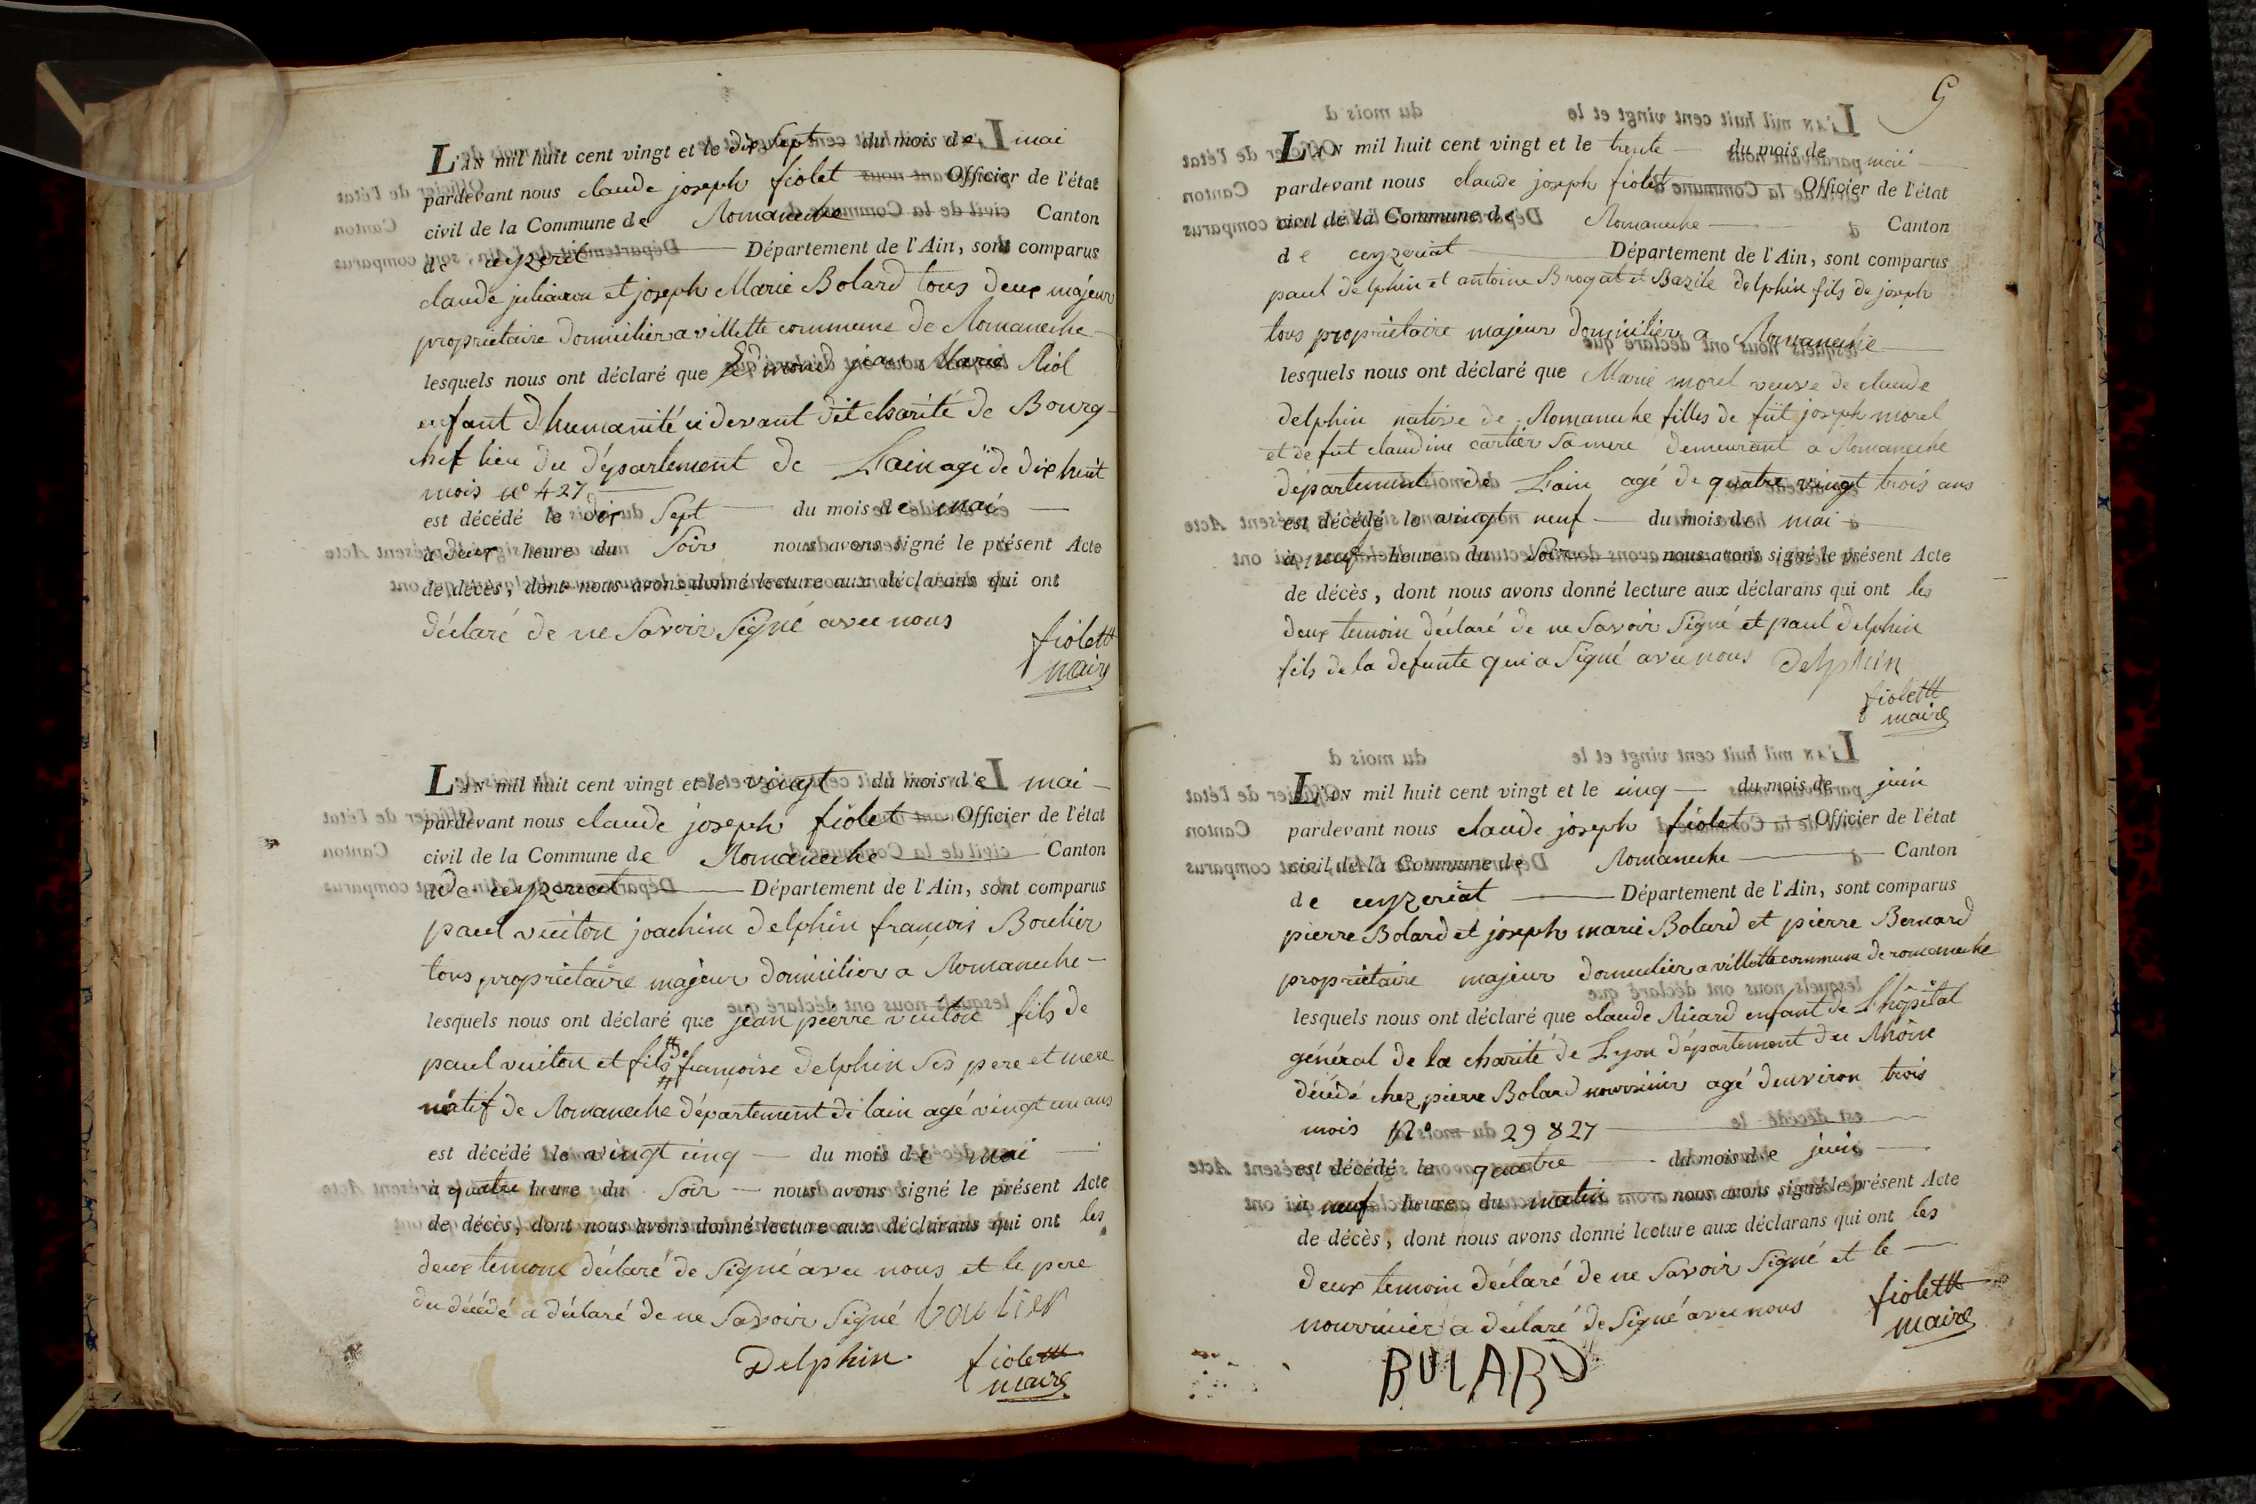 L'AN mil huit cent vingt et le dix sept du mois de mai
pardevant nous claude joseph fiolet Officier de l'état
civil de la Commune de Romaneche Canton
de ceyzeriat Département de l'Ain, sont comparus
claude et joseph Marie Bolard tous deux majeur
proprietaire domicilier a villette commune de Romaneche
lesquels nous ont déclaré que jean Marie Riol
enfant d'humanité ci devant dit charité de Bourg
chef lieu du département de Lain agé de dix huit
mois n° 427
est décédé le dix Sept du mois de mai
à deux heure du Soir nous avons signé le présent Acte
de décès, dont nous avons donné lecture aux déclarans qui ont
déclaré de ne Savoir Signé avec nous
fiolett
maire
L'AN mil huit cent vingt et le vingt du mois de mai
pardevant nous claude joseph fiolet Officier de l'état
civil de la Commune de Romaneche Canton
de ceyzeriat Département de l'Ain, sont comparus
paul vuiton joachim delphin françois Boulier
tous proprietaire majeur domicilier a Romaneche
lesquels nous ont déclaré que jean pierre vuiton fils de
paul vuiton et fils de françoise delphin Ses pere et mere
natif de Romaneche département de lain agé vingt un ans
est décédé le vingt cinq du mois de mai
à quatre heure du Soir nous avons signé le présent Acte
de décès, dont nous avons donné lecture aux déclarans qui ont les
deux temoin déclaré de Signé avec nous et le pere
du décédé a déclaré de ne Savoir Signé boulier
Delphin fiolett
maire
5
L'AN mil huit cent vingt et le trente du mois de mai
pardevant nous claude joseph fiolet Officier de l'état
civil de la Commune de Romaneche Canton
de ceyzeriat Département de l'Ain, sont comparus
paul delphin et antoine Brogat et Bazile delphin fils de joseph
tous proprietaire majeur domicilier a Romaneche
lesquels nous ont déclaré que Marie morel veuve de claude
delphin native de Romaneche filles de fût joseph morel
et de fut claudine cartier Sa mere demeurant a Romaneche
département de Lain agé de quatre vingt trois ans
est décédé le vingt neuf du mois de mai
à neuf heure du Soir nous avons signé le présent Acte
de décès, dont nous avons donné lecture aux déclarans qui ont les
deux temoin déclaré de ne Savoir Signé et paul delphin
fils de la defunte qui a Signé avec nous Delphin
fiolett
maire
L'AN mil huit cent vingt et le cinq du mois de juin
pardevant nous claude joseph fiolet Officier de l'état
civil de la Commune de Romaneche Canton
de ceyzeriat Département de l'Ain, sont comparus
pierre Bolard et joseph marie Bolard et pierre Bernard
proprietaire majeur domicilier a villette commune de romaneche
lesquels nous ont déclaré que claude Ricard enfant de L'hôpital
général de la charité de Lyon département du Rhône
décédé chez pierre Bolard nourricier agé d'environ trois
mois N° 29827
est décédé le quatre du mois de juin
à neuf heure du matin nous avons signé le présent Acte
de décès, dont nous avons donné lecture aux déclarans qui ont les
deux temoin déclaré de ne Savoir Signé et le
nourricier a déclaré de Signé avec nous
fiolett
maire
BULARD